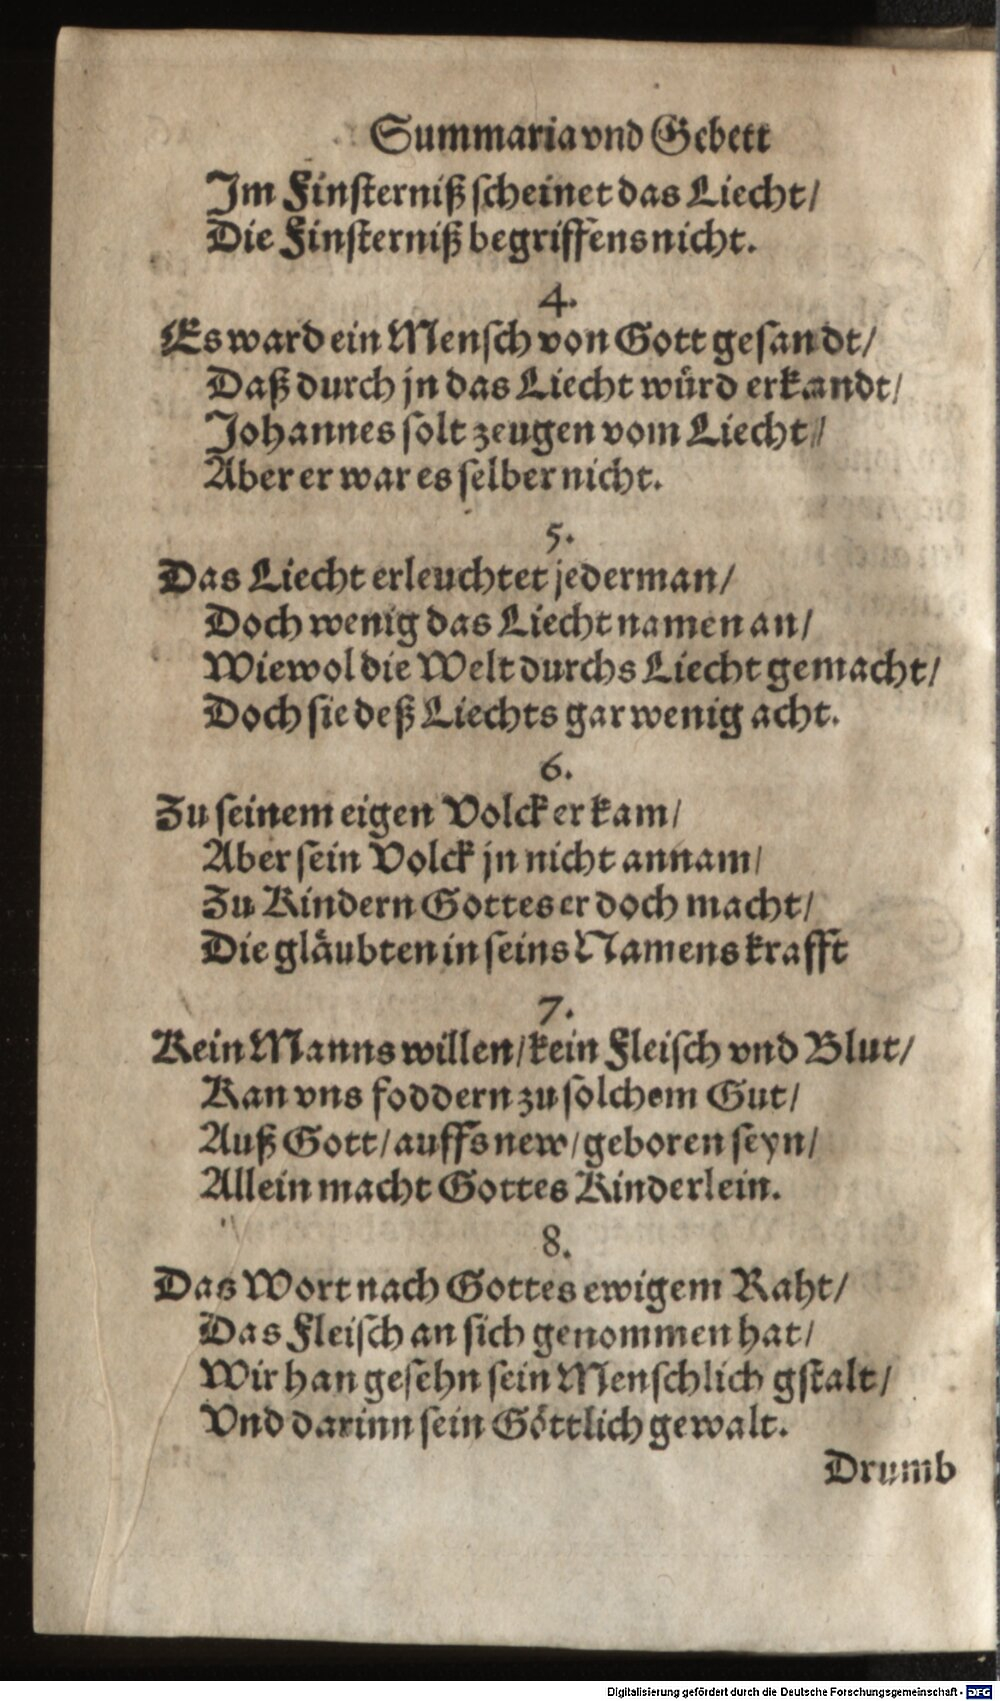 Summaria vnd Gebett
Im Finsterniß scheinet das Liecht/
Die Finsterniß begriffens nicht.
4.
Es ward ein Mensch von Gott gesandt/
Daß durch jn das Liecht würd erkandt/
Johannes solt zeugen vom Liecht/
Aber er war es selber nicht.
5.
Das Liecht erleuchtet jederman/
Doch wenig das Liecht namen an/
Wiewol die Welt durchs Liecht gemacht/
Doch sie deß Liechts gar wenig acht.
6.
Zu seinem eigen Volck er kam/
Aber sein Volck jn nicht annam/
Zu Kindern Gottes er doch macht/
Die gläubten in seins Namens krafft
7.
Kein Manns willen/kein Fleisch vnd Blut/
Kan vns foddern zu solchem Gut/
Auß Gott/auffs new/geboren seyn/
Allein macht Gottes Kinderlein.
8.
Das Wort nach Gottes ewigem Raht/
Das Fleisch an sich genommen hat/
Wir han gesehn sein Menschlich gstalt/
Vnd darinn sein Göttlich gewalt.
Drumb
Digitalisierung gefördert durch die Deutsche Forschungsgemeinschaft - DFG